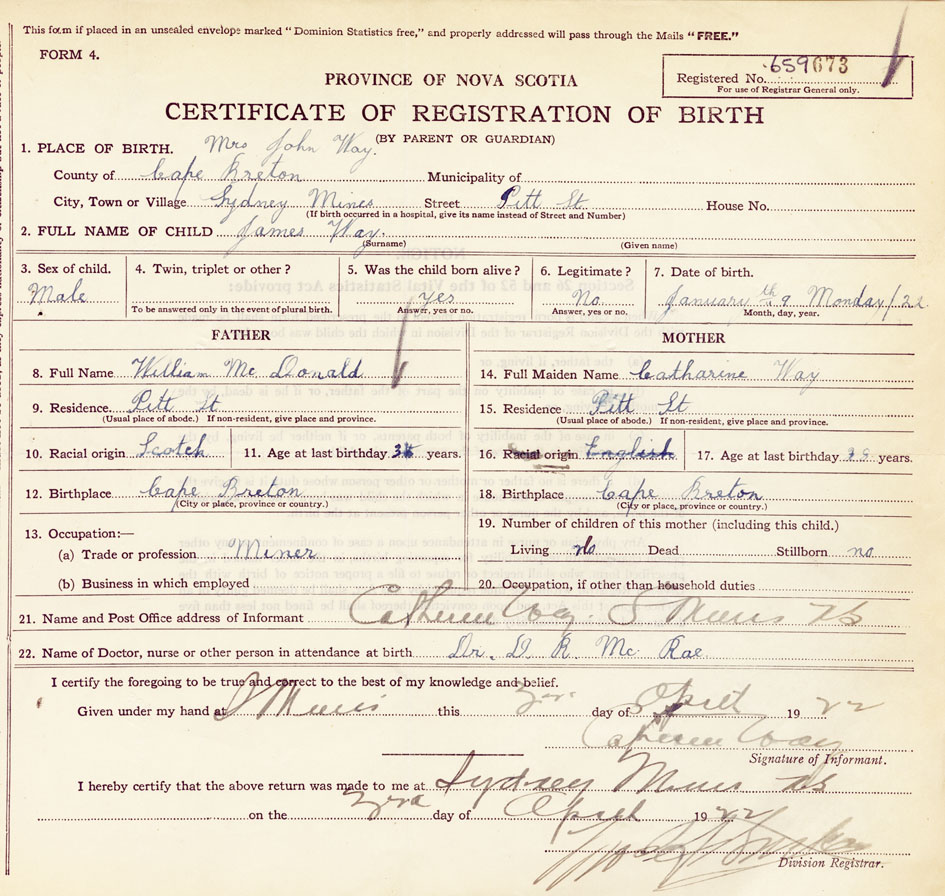 This form if placed in an unsealed envelope marked "Dominion Statistics free," and properly addressed will pass through the Mails "FREE."
FORM 4.
Registered No. 659673
For use of Registrar General only.
PROVINCE OF NOVA SCOTIA
CERTIFICATE OF REGISTRATION OF BIRTH
(BY PARENT OR GUARDIAN)
1. PLACE OF BIRTH. Mrs John Way.
County of Cape Breton Municipality of
City, Town or Village Sydney Mines Street Pitt St House No.
(If birth occurred in a hospital, give its name instead of Street and Number)
2. FULL NAME OF CHILD James Way.
(Surname) (Given name)
3. Sex of child. 4. Twin, triplet or other? 5. Was the child born alive? 6. Legitimate? 7. Date of birth.
Male yes No January th 9 Monday / 22
To be answered only in the event of plural birth. Answer, yes or no. Answer, yes or no. Month, day, year.
FATHER MOTHER
8. Full Name William Mc Donald 14. Full Maiden Name Catharine Way
9. Residence. Pitt St 15. Residence Pitt St
(Usual place of abode.) If non-resident, give place and province. (Usual place of abode.) If non-resident, give place and province.
10. Racial origin Scotch 11. Age at last birthday years. 16. Racial origin English 17. Age at last birthday years.
12. Birthplace Cape Breton 18. Birthplace Cape Breton
(City or place, province or country.) (City or place, province or country.)
13. Occupation:— 19. Number of children of this mother (including this child.)
(a) Trade or profession Miner Living Dead Stillborn no
(b) Business in which employed 20. Occupation, if other than household duties
21. Name and Post Office address of Informant Catherine Way S Mines NS
22. Name of Doctor, nurse or other person in attendance at birth Dr. D R Mc Rae
I certify the foregoing to be true and correct to the best of my knowledge and belief.
Given under my hand at S Mines this day of April 1922
Catherine Way
Signature of Informant.
I hereby certify that the above return was made to me at Sydney Mines NS
on the day of April 1922
Division Registrar.